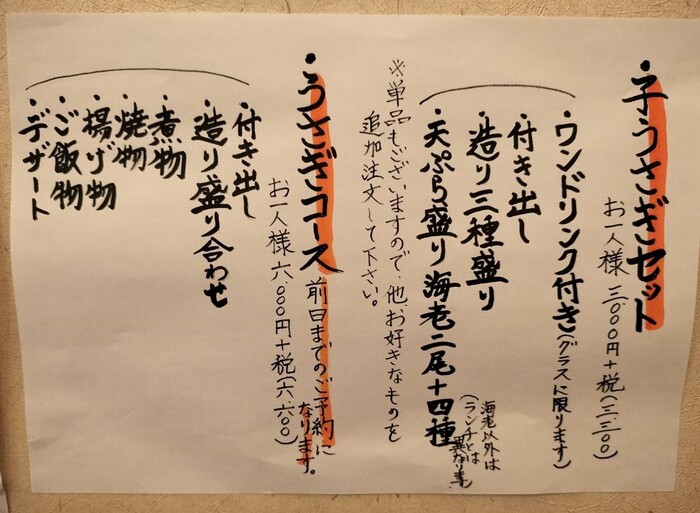 ・子うさぎセット
お一人様 三、〇〇〇円+税(三、三〇〇)
・ワンドリンク付き(グラスに限ります)
・付き出し
・造り三種盛り
・天ぷら盛り 海老二尾+四種
(海老以外は
ランチとは
異なります)
※単品もございますので、他お好きなものを
追加注文して下さい。
・うさぎコース 前日までのご予約に
なります。
お一人様 六、〇〇〇円+税(六、六〇〇)
・付き出し
・造り盛り合わせ
・煮物
・焼物
・揚げ物
・ご飯物
・デザート